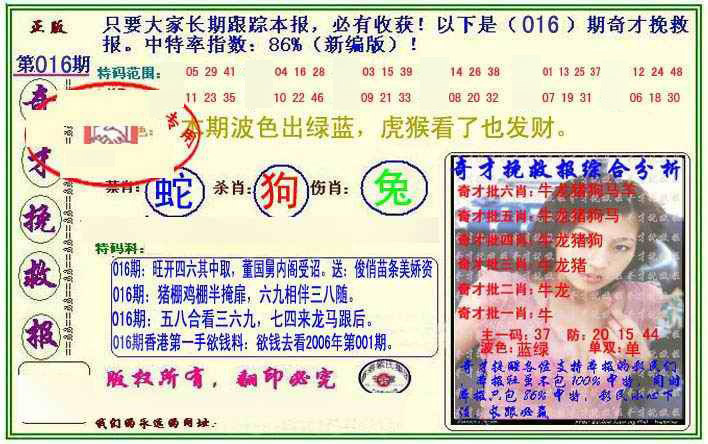 正版
只要大家长期跟踪本报，必有收获！以下是（016）期奇才挽救
报。中特率指数：86%（新编版）！
第016期
奇才挽救报
特码范围：
05 29 41 04 16 28 03 15 39 14 26 38 01 13 25 37 12 24 48
11 23 35 10 22 46 09 21 33 08 20 32 07 19 31 06 18 30
专用
本期波色出绿蓝，虎猴看了也发财。
禁肖：蛇 杀肖：狗 伤肖：兔
特码科：
016期：旺开四六其中取，董国舅内阁受诏。送：俊俏苗条美娇资
016期：猪棚鸡棚半掩扉，六九相伴三八随。
016期：五八合看三六九，七四来龙马跟后。
016期香港第一手欲钱料：欲钱去看2006年第001期。
版权所有，翻印必究
我们的永远的网址：
奇才挽救报综合分析
奇才批六肖：牛龙猪狗马羊
奇才批五肖：牛龙猪狗马
奇才批四肖：牛龙猪狗
奇才批三肖：牛龙猪
奇才批二肖：牛龙
奇才批一肖：牛
主一码：37 防：20 15 44
波色：蓝绿 单双：单
奇才提醒各位支持本报的彩民们
本报社虽不包100%中特，同时
本报只包86%中特，彩民小心下
注，长跟必赢